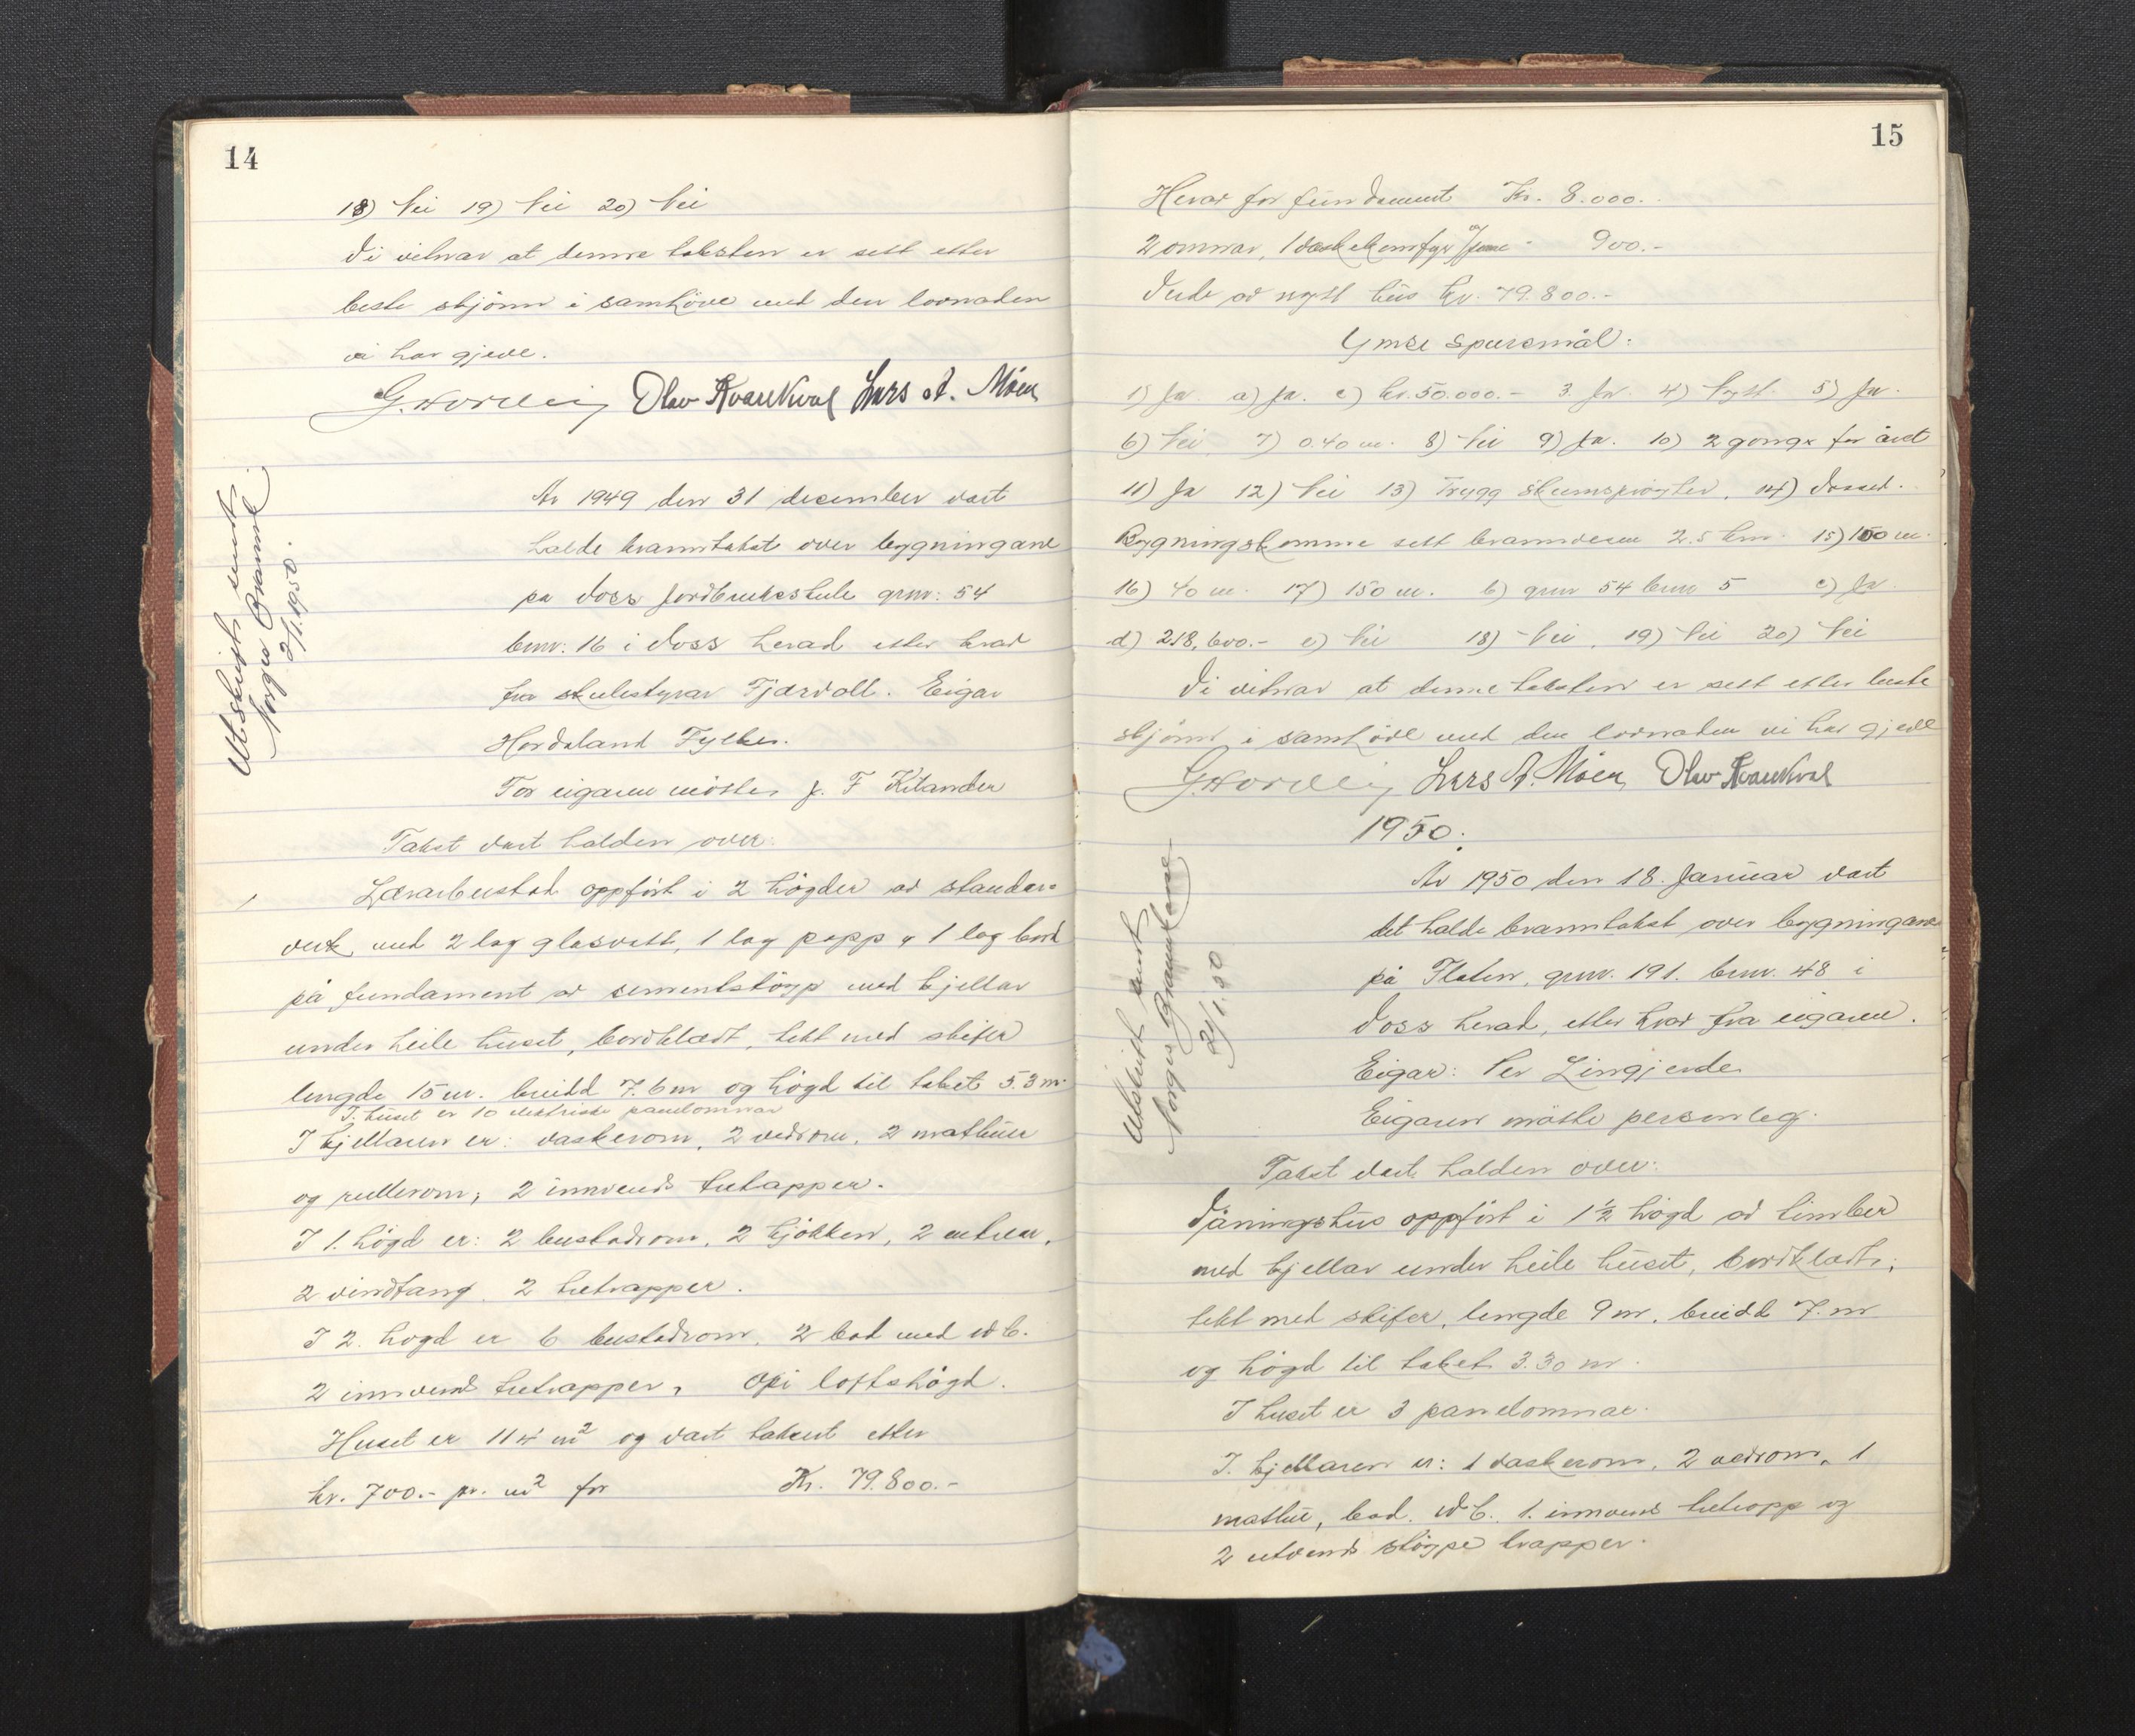 14
18) Nei 19) Nei 20) Nei
Vi vitnar at denne taksten er sett etter
beste skjönn i samhöve med den lovnaden
vi har gjeve.
Olav Kvarekval Lars A. Möen
Utskrift sendt
Norges Brannk
2/1.1950.
År 1949 den 31 desember vart
halde branntakst over bygningane
på Voss Jordbruksskule gnr: 54
bnr: 16 i Voss herad etter krav
fra skulestyrar Tjærvoll. Eigar
Hordaland Fylke.
For eigaren mötte J. F Kilander
Takst vart halden over:
1 Lærarbustad oppfört i 2 högder av stander-
verk, med 2 lag glasvatt, 1 lag papp og 1 lag bord
på fundament av sementstöyp med kjellar
under heile huset, bordklædt, tekt med skifer
lengde 15 m. breidd 7.6 m og högd til taket 5.3 m.
I huset er 10 elektriske panelomnar
I kjellaren er: vaskerom, 2 vedrom, 2 matbuer
og rullerom, 2 innvend tretrapper.
I 1. högd er: 2 bustadrom, 2 kjökken, 2 entrear,
2 vindfang. 2 tretrapper.
I 2. högd er 6 bustadrom, 2 bad med W.C.
2 innvend tretrapper, opi loftshögd.
Huset er 114 m² og vart taksert etter
kr. 700.- pr. m² for Kr. 79.800.-
15
Herav for fundament Kr. 8.000.-
2 omnar, 1 900.-
Verde av nytt hus kr. 79.800.-
Ymse spursmål:
1) Ja a) Ja. c) kr. 50.000.- 3. Ja 4) Nytt. 5) Ja.
6) Nei, 7) 0.40 m. 8) Nei 9) Ja. 10) 2 gonger for året
11) Ja 12) Nei 13) Trygg skumsprøyter, 14) Vossed.
Bygningskomme sett brannvesen 2.5 km 15) 150 m.
16) 40 m. 17) 150 m. b) gnr 54 bnr 5 c) Ja
d) 218,600.- e) Nei 18) Nei, 19) Nei 20) Nei
Vi vitnar at denne taksten er sett etter beste
skjönn i samhöve med den lovnaden vi har gjeve
Lars A. Möen, Olav Kvarekval
1950.
Utskrift sendt
Norges Brannkasse
24/1.50
År 1950 den 18. Januar vart
det halde branntakst over bygningane
på Flaten, gnr. 191. bnr. 48 i
Voss herad, etter krav fra eigaren.
Eigar: Per Lingjerde
Eigaren mötte personleg.
Takst vart halden over:
Våningshus oppfört i 1½ högd av timber
med kjellar under heile huset, bordklædt,
tekt med skifer, lengde 9 m. breidd 7. m
og högd til taket 3.30 m.
I huset er 3 panelomnar.
I. kjellaren er: 1 vaskerom, 2 vedrom, 1
matbu, bad. W.C. 1. innvend tretrapp og
2 utvend stöype trapper.